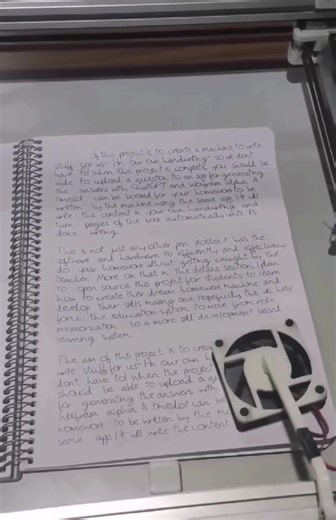 of this project is to create a machine to write
stuff for us in our own handwriting so we don't
have to when the project is complete you should be
able to upload a question to an app for generating
the answers with ChatGPT and Wolfram alpha. A
timeslot can be booked for your homework to be
written by the machine using the same app/It will
write the content in your own handwriting and
turn pages of the book automatically until its
done writing
This is not just any other pen plotter has the
software and hardware to efficiently and effectively
do your homework without getting caught by the
teacher More on that in the details section I plan
to open source this project for students to learn
how to create their dream homework machine and
develop their skills making one. Hopefully, this'll help
force the education system to move from rote
memorization to a more skill development based
learning system
The aim of this project is to crea
write stuff for us in our own h
don't have to when the project
should be able to upload a qu
for generating the answers with
Wolfram alpha. A timeslot can be
homework to be written by the
same app/It will write the content